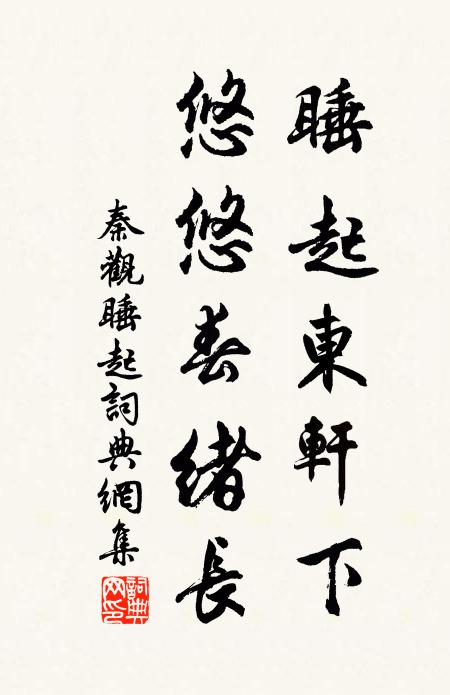 睡起東軒下
悠悠春緒長
秦觀睡起詞典網集
詞典網印